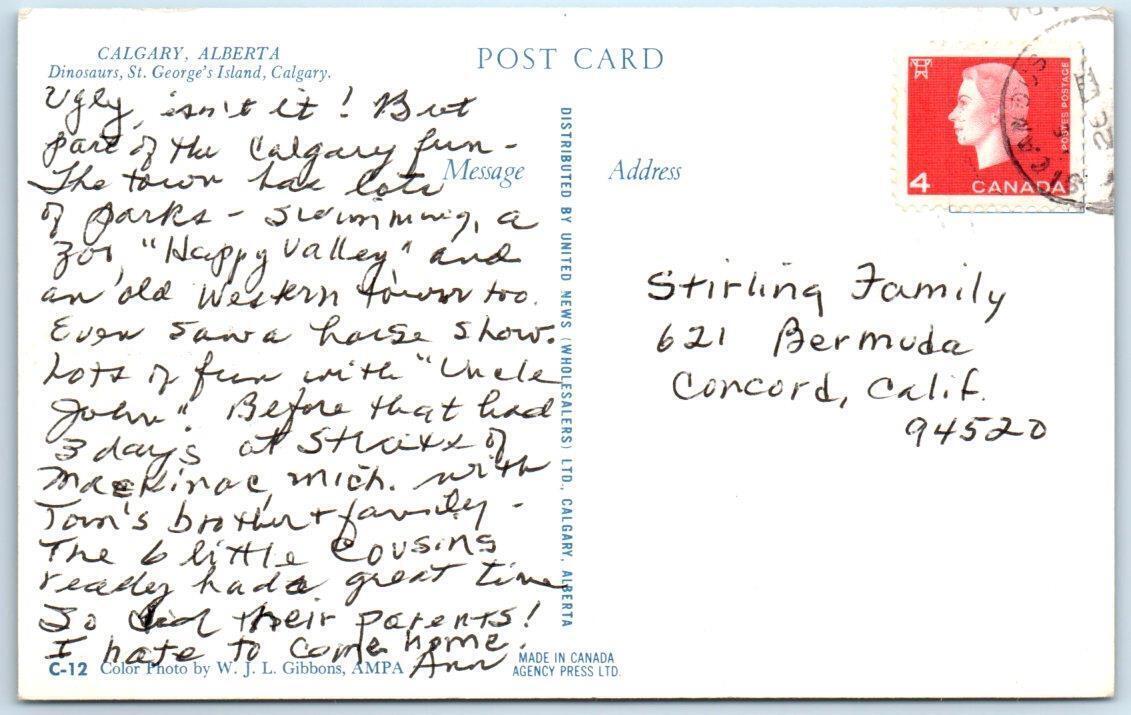 CALGARY, ALBERTA
Dinosaurs, St. George's Island, Calgary.
POST CARD
Ugly, isn't it! But
part of the Calgary fun -
The town has lots
of parks - swimming, a
zoo, "Happy Valley" and
an old Western town too.
Even saw a horse show.
Lots of fun with "Uncle
John". Before that had
3 days at Straits of
Mackinac, Mich. with
Tom's brother + family -
The 6 little cousins
really had a great time
So did their parents!
I hate to come home.
Ann
Message
Address
DISTRIBUTED BY UNITED NEWS (WHOLESALERS) LTD., CALGARY, ALBERTA
POSTES POSTAGE
4 CANADA
Stirling Family
621 Bermuda
Concord, Calif.
94520
C-12 Color Photo by W. J. L. Gibbons, AMPA
MADE IN CANADA
AGENCY PRESS LTD.